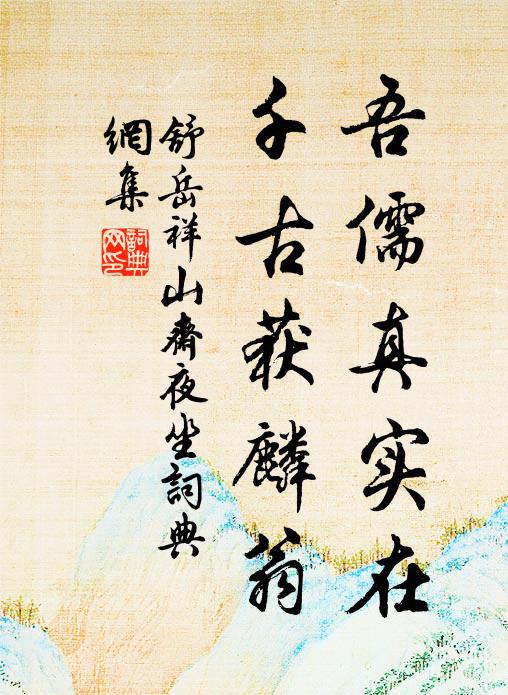 吾儒真实在
千古获麟翁
舒岳祥山斋夜坐詞典
網集
詞典
网印